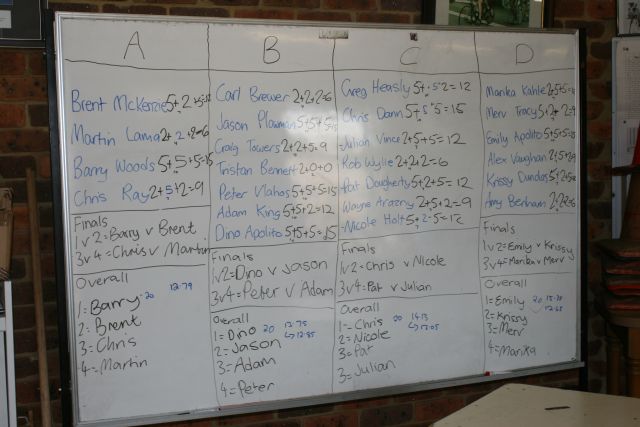 A
Brent McKenzie 5+2+5=12
Martin Lama 2+2+2=6
Barry Woods 5+5+5=15
Chris Ray 2+5+2=9
Finals
1v2=Barry v Brent
3v4=Chris v Martin
Overall
1=Barry 20 12.79
2=Brent
3=Chris
4=Martin
B
Carl Brewer 2+2+2=6
Jason Plowman 5+5+5=15
Craig Towers 2+2+5=9
Tristan Bennett 2+0+0
Peter Vlahos 5+5+5=15
Adam King 5+5+2=12
Dino Apolito 5+5+5=15
Finals
1v2=Dino v Jason
3v4=Peter v Adam
Overall
1=Dino 20 12.75
↳12.85
2=Jason
3=Adam
4=Peter
C
Greg Heasly 5+5+2=12
Chris Dann 5+5+5=15
Julian Vince 2+5+5=12
Rob Wylie 2+2+2=6
Pat Dougherty 5+2+5=12
Wayne 2+5+2=9
Nicole Holt 5+2+5=12
Finals
1v2=Chris v Nicole
3v4=Pat v Julian
Overall
1=Chris 20 14.13
↳13.05
2=Nicole
3=Pat
3=Julian
D
Marika Kahle 2+5+5
Merv Tracy 5+2+2=9
Emily Apolito 5+5+5=15
Alex Vaughan 2+5+2=9
Krissy Dundas 5+2+5
Amy Benham 2+2+2=6
Finals
1v2=Emily v Krissy
3v4=Marika v Merv
Overall
1=Emily 20
2=Krissy
3=Merv
4=Marika